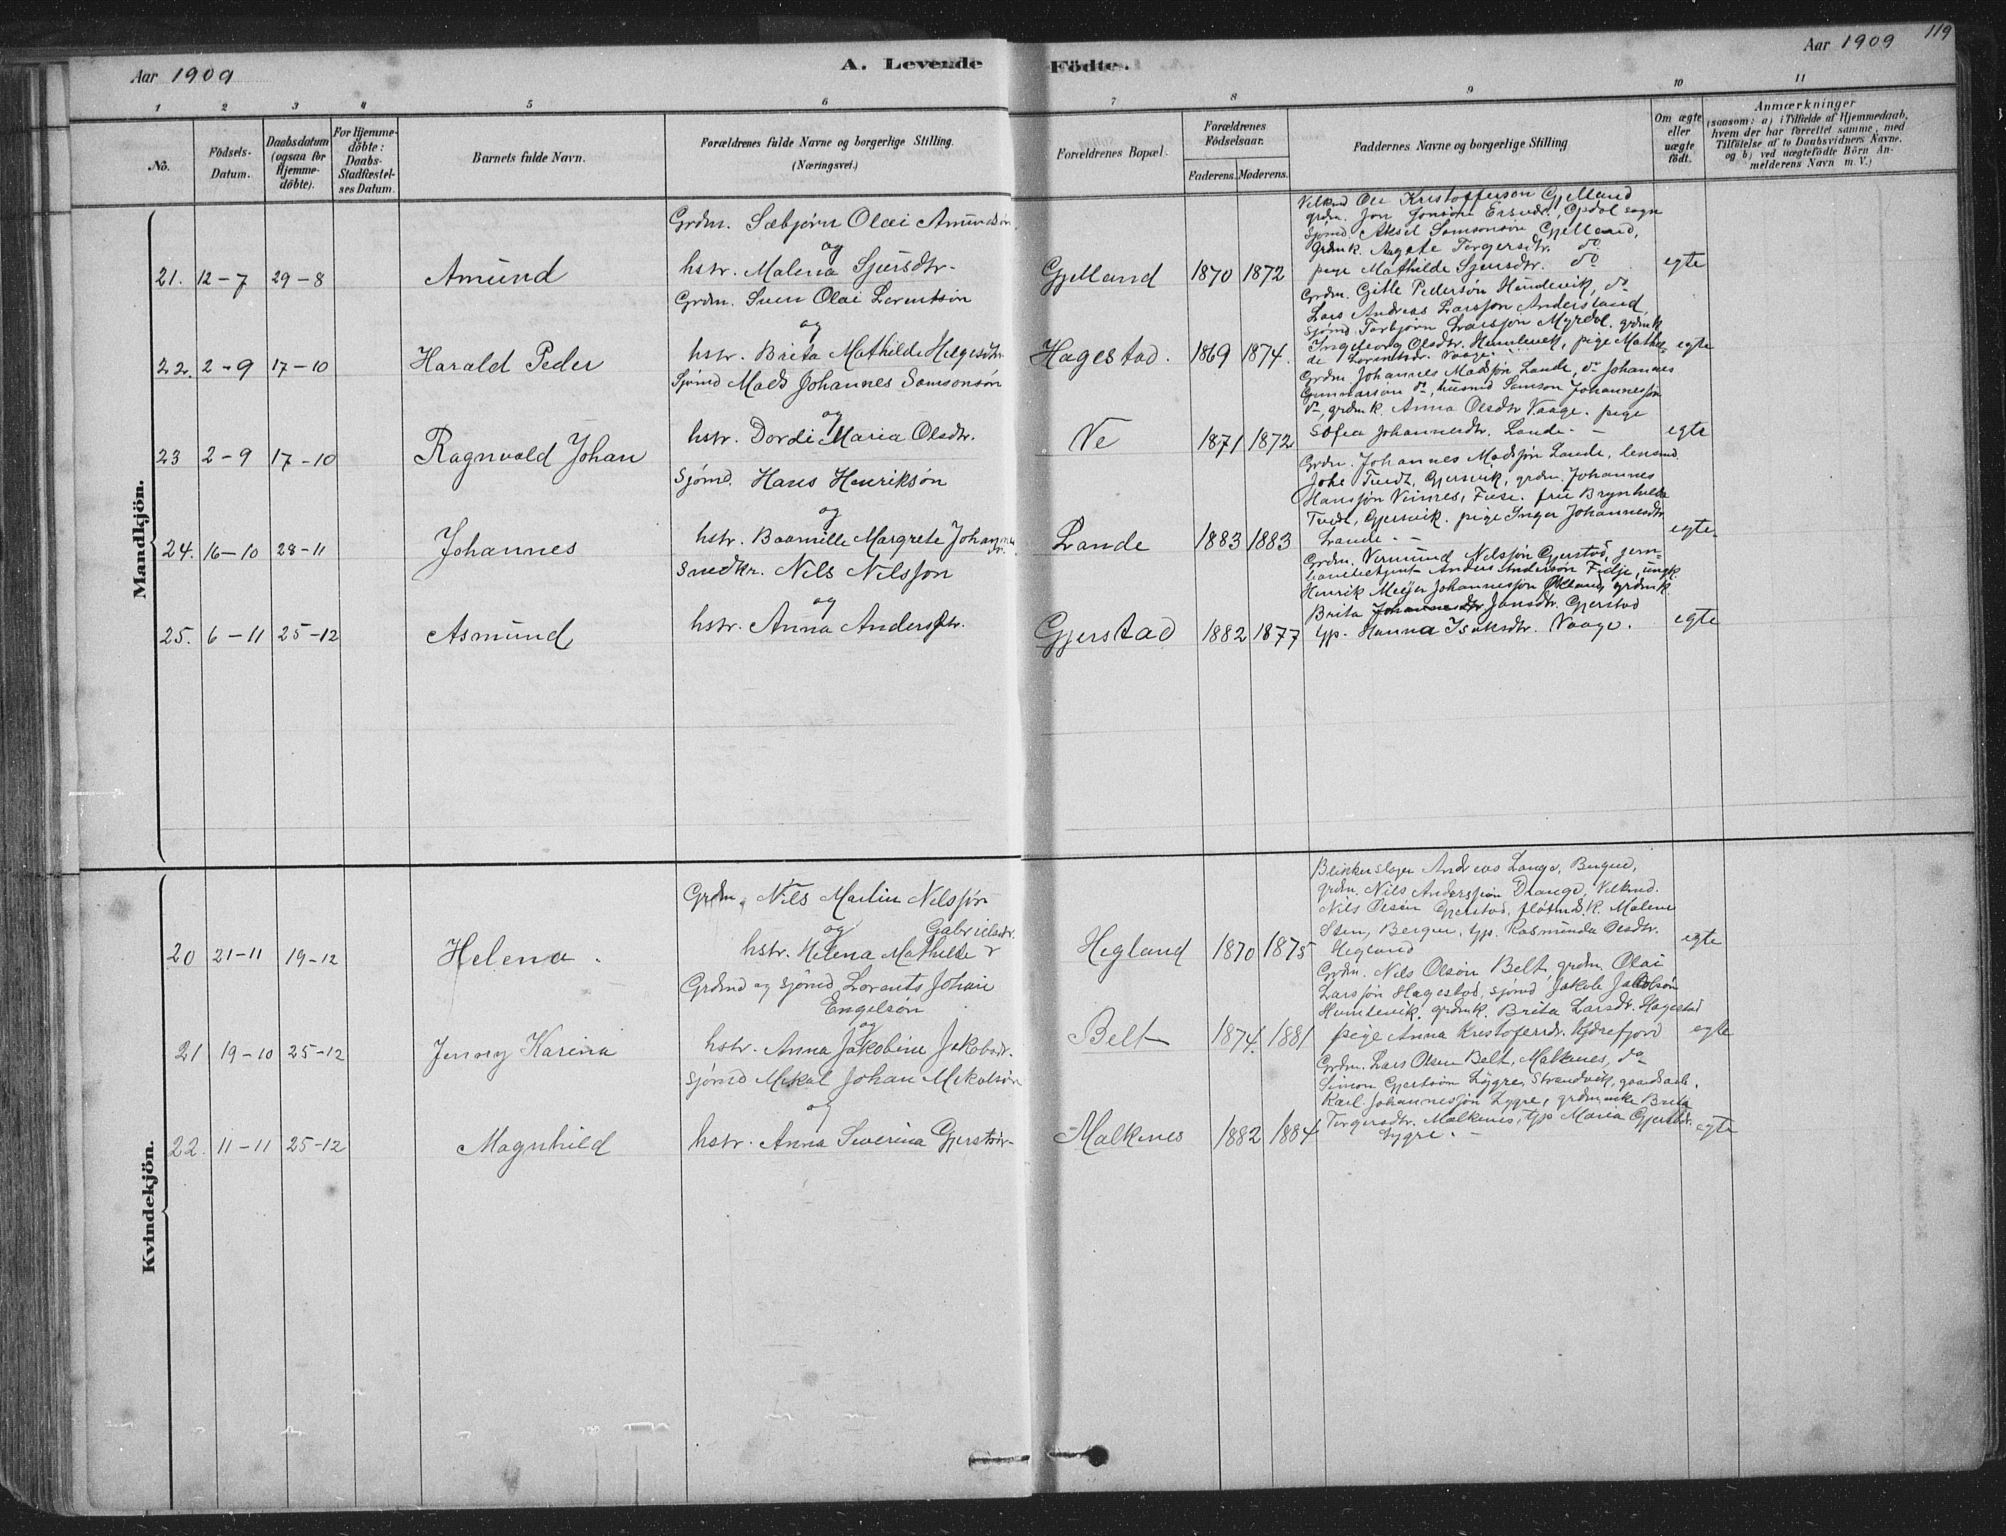 Aar 1909
A. Levende Födte.
Aar 1909
119
1 2 3 4 5 6 7 8 9 10 11
No.
Födsels-
Datum.
Daabsdatum
(ogsaa for
Hjemme-
döbte).
For Hjemme-
döbte:
Daabs-
Stadfæstel-
ses Datum.
Barnets fulde Navn.
Forældrenes fulde Navne og borgerlige Stilling.
(Næringsvei.)
Forældrenes Bopæl.
Forældrenes
Födselsaar.
Faderens. Moderens.
Faddernes Navne og borgerlige Stilling
Om ægte
eller
uægte
födt.
Anmærkninger
(saasom: a) i Tilfælde af Hjemmedaab,
hvem der har forrettet samme, med
Tilföielse af to Daabsvidners Navne.
og b) ved uægtefödte Börn An-
melderens Navn m. V.)
Mandkjön.
21. 12-7 29-8 Amund
Grdm. Sæbjørn Olai Amundsøn
og
hstr. Malena Sjursdtr.
Gjelland 1870 1872
Velknd Ole Kristoffersøn Gjelland
grdm. Jon Jonsøn , Opdal sogn
Sjømd. Aksel Samsonsøn Gjelland,
grdmk. Aagate Torgersdtr. do
pige Mathilde Sjursdtr. do
egte
22. 2-9 17-10 Harald Peder
Grdm. Sven Olai Lorentsøn
og
hstr. Brita Mathilde Helgesdtr
Hagestad. 1869 1874.
Grdm. Gitle Pedersøn Humlevik, do
Lars Andreas Larssøn Andersland,
sjømd. Torbjørn Larssøn Myrdal. grdmk
Ingeborg Olsdtr. Humlevik, pige Mathil-
de Lorentsdtr. Vaage.
egte
23 2-9 17-10 Ragnvald Johan
Sjømd Mads Johannes Samsonsøn
og
hstr. Dordi Maria Olsdtr.
Ve 1871 1872
Grdm Johannes Madssøn Lande, do Johannes
Gunnarsøn do, husmd Samson Johannessøn
do, grdmk. Anna Olsdtr Vaage. pige
Sofia Johannesdtr. Lande. -
egte
24. 16-10 28-11 Johannes
Sjømd. Hans Henriksøn
og
hstr. Margrete Johannes
dr.
Lande 1883 1883
Grdm. Johannes Madssøn Lande, lensmd.
Johs Tvedt, Gjersvik, grdm. Johannes
Hanssøn Vinnes, Fuse. frue Brynhilda
Tvedt, Gjersvik. pige Inger Johannesdtr
Lande - -
egte
25. 6-11 25-12 Asmund
Snedkr. Nils Nilssøn
og
hstr. Anna Andersdtr.
Gjerstad 1882 1877
Grdm. Vermund Nilssøn Gjerstad, jern-
banebetjent Anders Andersøn Fidje, ungk.
Henrik Meyer Johannessøn Økland, grdmk.
Brita Johannesdtr Jonsdtr. Gjerstad
tjp. Hanna Isaksdtr. Vaage.
egte
Kvindekjön.
20 21-11 19-12 Helena
Grdm. Nils Martin Nilssøn
og Gabrielsdr.
hstr. Helena Mathilde
Hegland 1870 1875
Blikkenslager Andreas Lange, Bergen,
grdm. Nils Anderssøn Drange, Velknd.
Nils Olsøn Gjerstad, fløtmdk. Malene
Sten, Bergen, tjp. Rasmunda Olsdtr.
Hegland
egte
21 19-10 25-12 Jenny Karina
Grdmd og sjømd Lorents Johan
Engelsøn
og
hstr. Anna Jakobine Jakobsdr.
Belt 1874. 1881
Grdm. Nils Olsøn Belt, grdm. Olai
Larssøn Hagestad, sjømd Jakob Jakobsøn
Humlevik. grdmk. Brita Larsdr. Hagestad
pige Anna Kristofersdr. Kjærefjord
egte
22. 11-11 25-12 Magnhild
Sjømd Mikal Johan Mikalsøn
og
hstr. Anna Severina Gjertsdr
Malkenes 1882 1884
Grdm. Lars Olsen Belt, Malkenes, do
Simon Gjertsøn Lygre, Strandvik, gaardsarb.
Karl Johannessøn Lygre, grdmenke Brita
Torgersdtr. Malkenes, tjp Maria Gjertsdr.
Lygre. -
egte